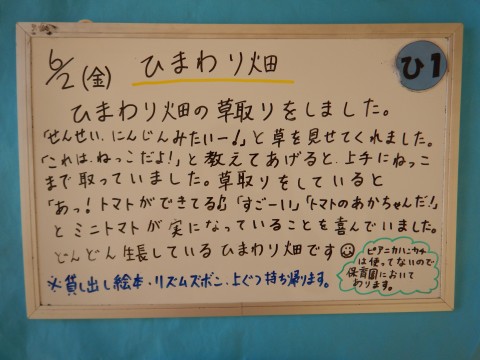 6/2(金) ひまわり畑
ひ1
ひまわり畑の草取りをしました。
「せんせい、にんじんみたいー!」と草を見せてくれました。
「これは、ねっこだよ!」と教えてあげると、上手にねっこ
まで取っていました。草取りをしていると
「あっ!トマトができてる!」「すごーい」「トマトのあかちゃんだ!」
とミニトマトが実になっていることを喜んでいました。
どんどん生長しているひまわり畑です
※貸し出し絵本・リズムズボン・上ぐつ持ち帰ります。
ピアニカハンカチ
は使ってないので
保育園において
あります。